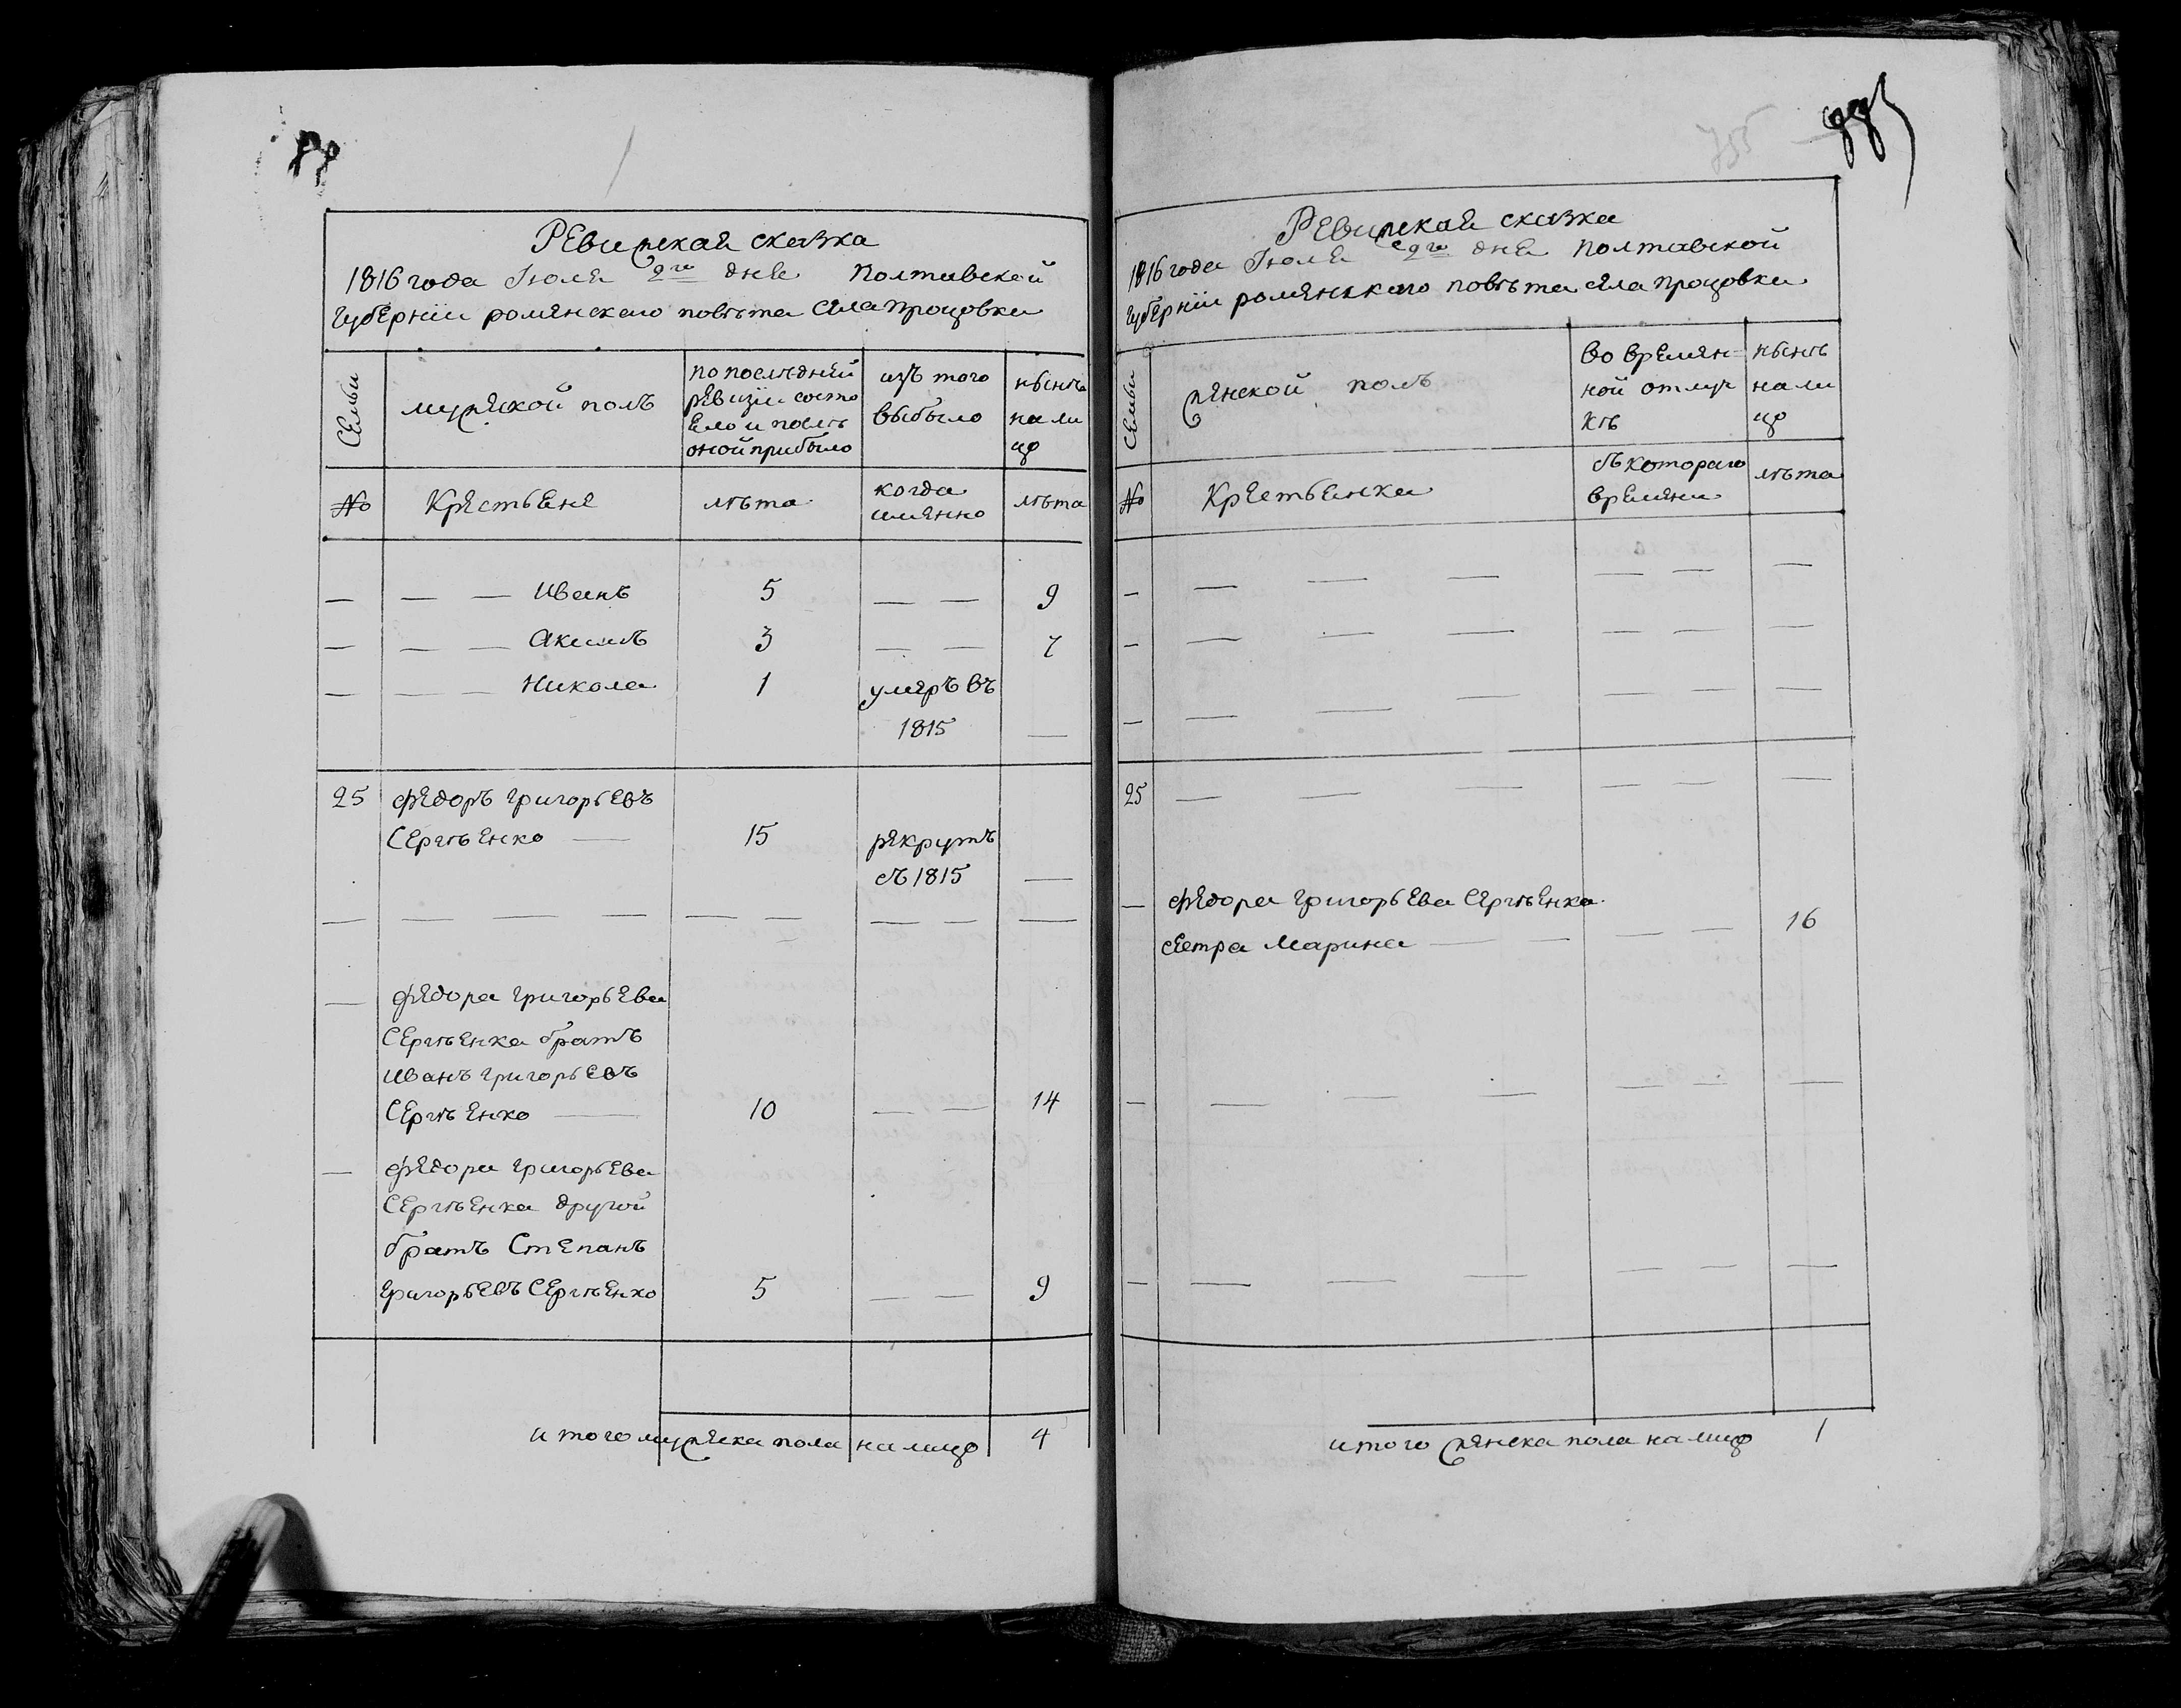 Ревижская сказка
1816 года Іюля 2го дня Полтавской
Губерніи роменскаго повѣта села Процовки
Семьи
мужеской полъ
по послѣдней
ревизіи состо
яло и послѣ
оной прибыло
изъ того
выбыло
нынѣ
на ли
цо
№
Крестьяне
лѣта
когда
имянно
лѣта
— — — Иванъ 5 — — 9
— — — Акимъ 3 — — 7
— — — Никола 1 умеръ въ
1815 —
25 Федоръ Григорьевъ
Сергѣенко — 15 рекрутъ
съ 1815 —
— — — — — — — — —
— Федора Григорьева
Сергѣенка братъ
Иванъ Григорьевъ
Сергѣенко — 10 — — 14
— Федора Григорьева
Сергѣенка другой
братъ Степанъ
Григорьевъ Сергѣенко 5 — — 9
итого мужеска пола на лицо 4
755
Ревижская сказка
1816 года Іюля 2го дня Полтавской
Губерніи роменскаго повѣта села Процовки
Семьи
женской полъ
во времян=
ной отлуч
кѣ
нынѣ
на ли
цо
№
Крестьянки
съ котораго
времяни
лѣта
— — — — — — —
— — — — — — —
— — — — — — —
25 — — — — — —
— Федора Григорьева Сергѣенка
сестра Марина — — — — 16
— — — — — — —
— — — — — — —
итого женска пола на лицо 1